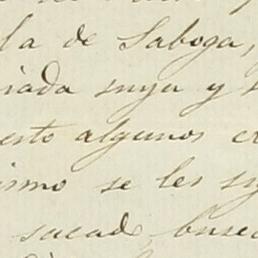 la de Saboga,
iada suya y s
esto algunos c
ismo se les si
sacad, busca